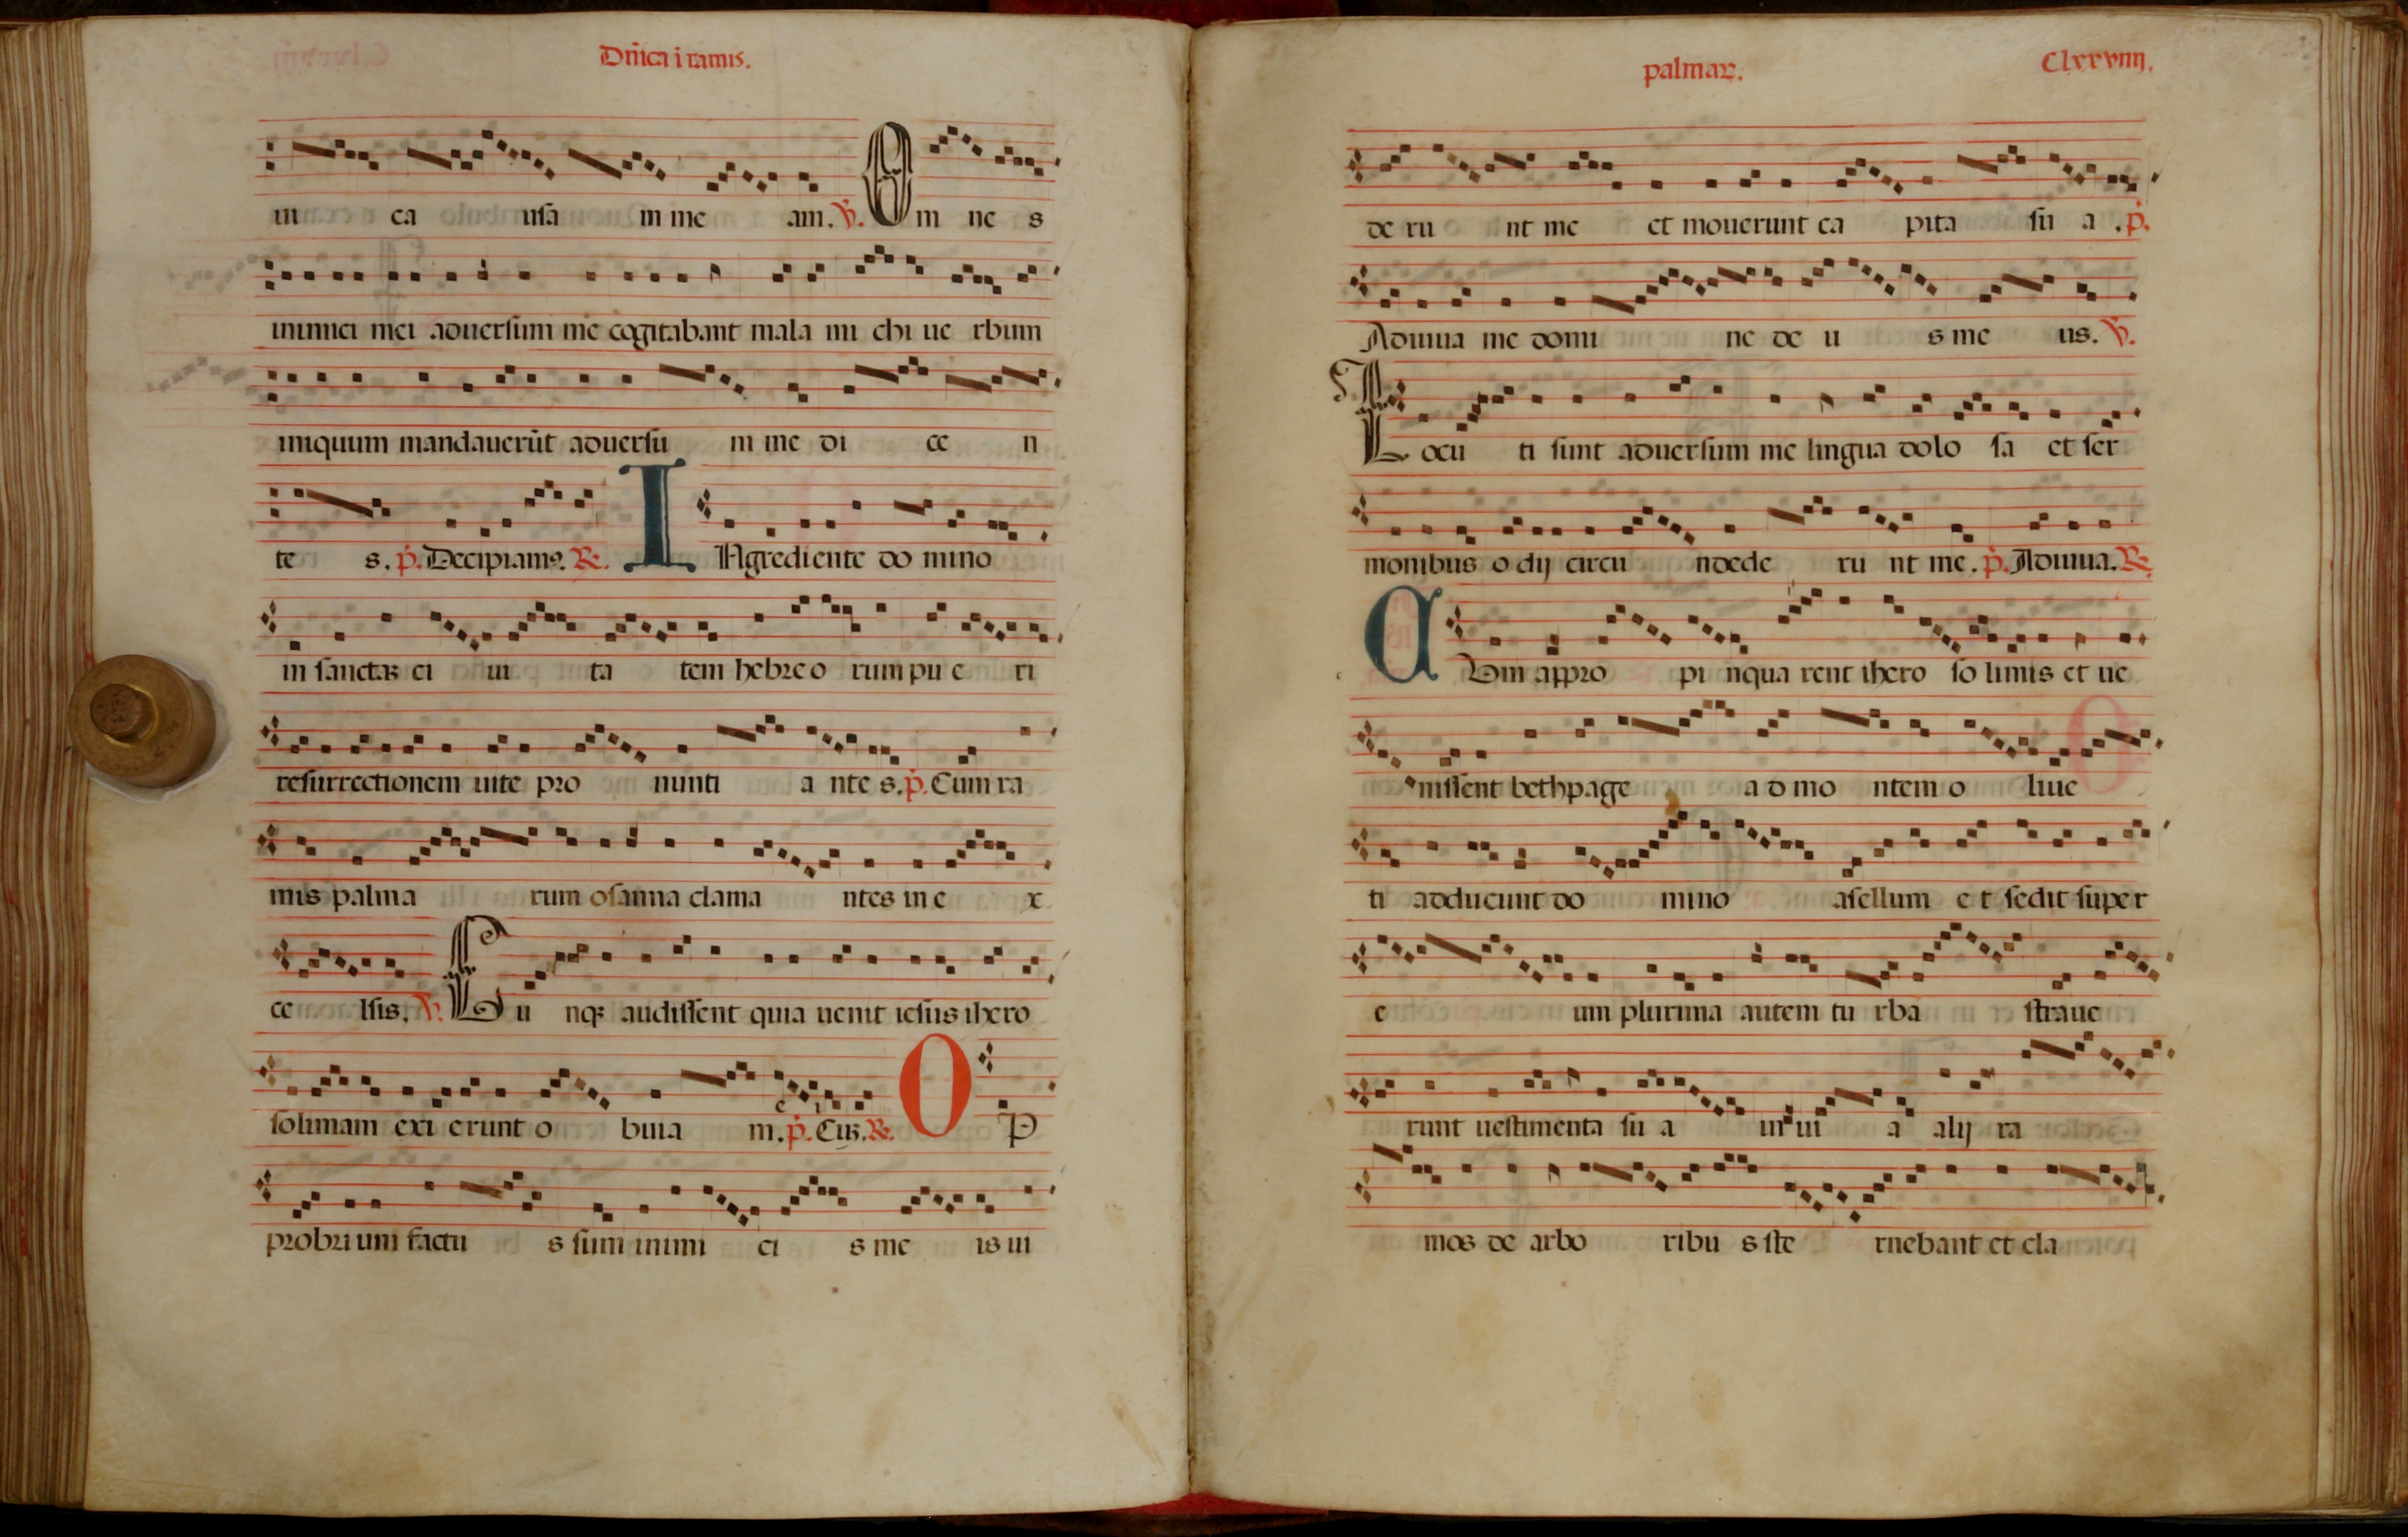 Dñica i ramis.
in ca usa in me am. V. Om ne s
inimici mei aduersum me cogitabant mala mi chi ue rbum
iniquum mandauerūt aduersu m me di ce n
te s. p. Decipiamꝰ. R. I Ngrediente do mino
in sanctaꝫ ci ui ta tem hebreo rum pu e ri
resurrectionem uite pro nunti a nte s. p. Cum ra
mis palma rum osanna clama ntes in e x
ce lsis. V. Cu nqꝫ audissent quia uenit iesus ihero
solimam exi erunt o buia m. p. Cū. R. O P
probrium factu s sum inimi ci s me is ui
palmaꝝ. Clxxviiij.
de ru nt me et mouerunt ca pita su a . p.
Adiuua me domi ne de u s me us. V.
Locu ti sunt aduersum me lingua dolo sa et ser
monibus o dij circu ndede ru nt me. p. Adiuua. R.
Cum appro pi nqua rent ihero so limis et ue
nissent bethpage a d mo ntem o liue
ti adducunt do mino asellum e t sedit super
e um plurima autem tu rba straue
runt uestimenta su a in ui a alij ra
mos de arbo ribu s ste rnebant et cla